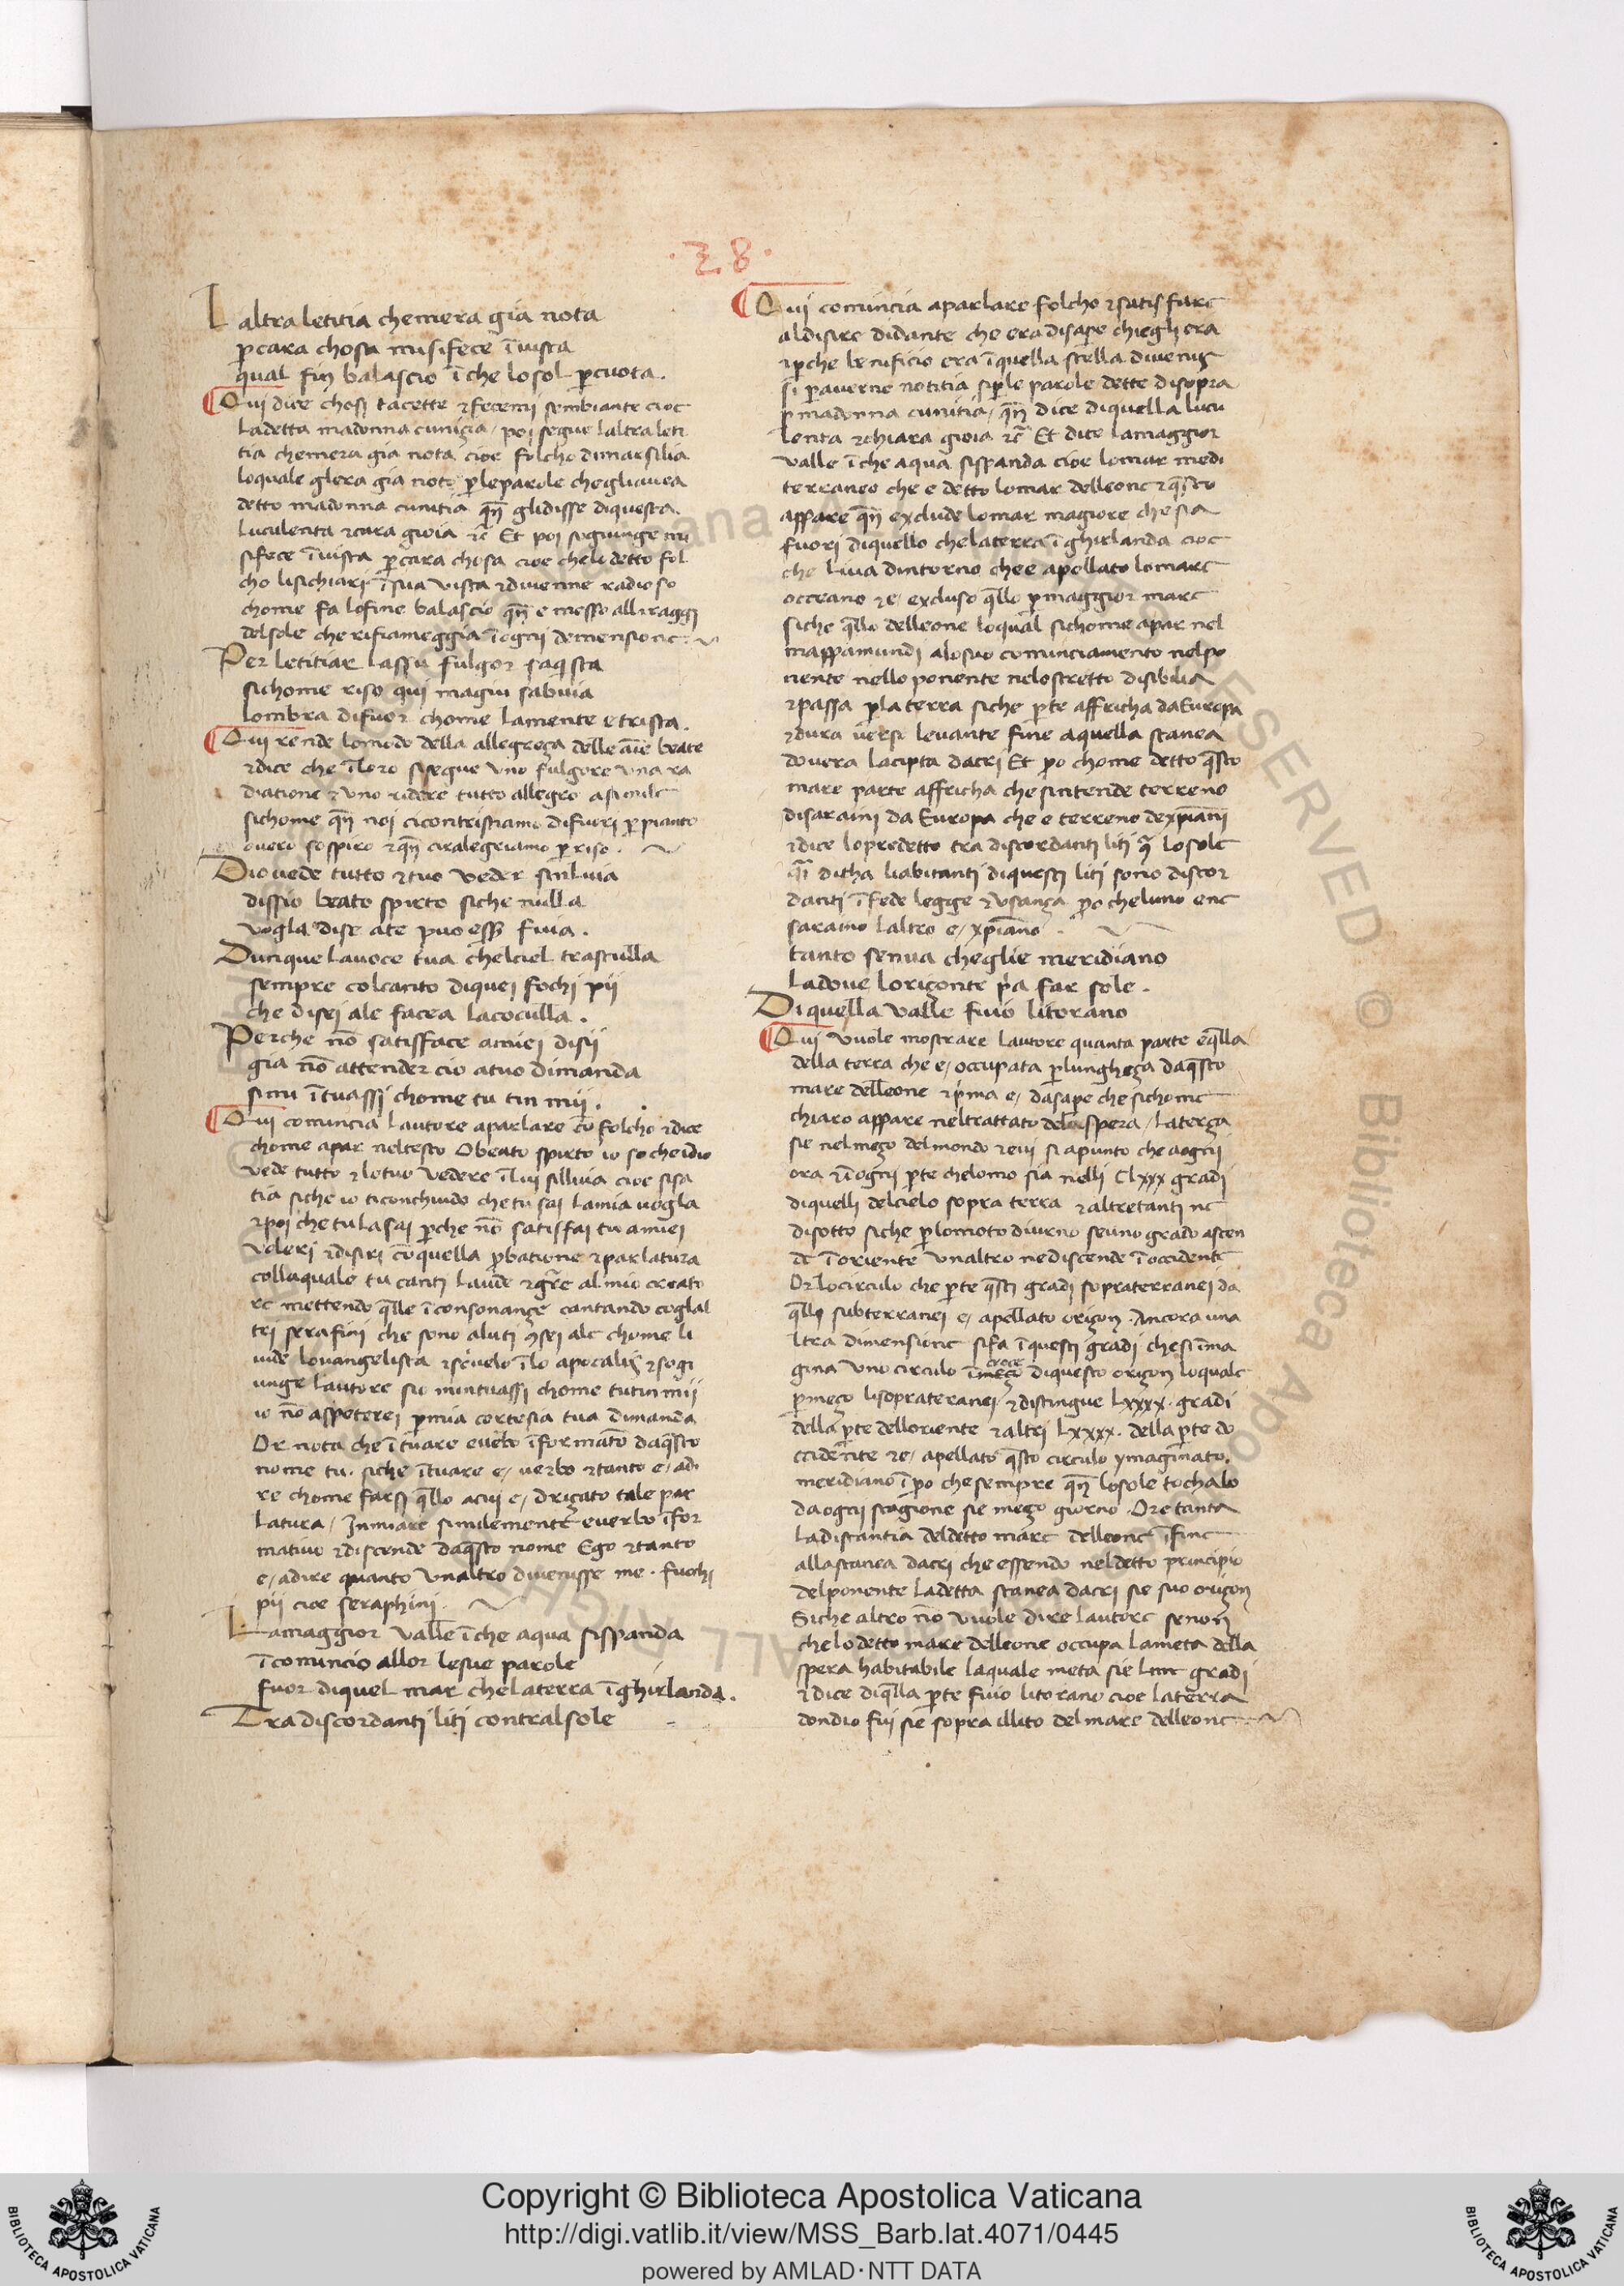 ·28·
L altra letitia chemera gia nota
p̱cara chosa misifece ĩuista
qual fin balascio ĩ che lo sol p̱cuota.
Qui dice chosi tacette ⁊fecemi sembiante cioe
ladetta madonna cuniza / poi segue laltra leti
tia chemera gia nota cioe folcho dimarsilia
loquale glera gia noto p̱leparole chegliauea
detto madonna cunitia qñ glidisse diquesta
luculenta ⁊cara gioia ⁊c̃ Et poi sogiunge mi
sifece ĩuista p̱cara chosa cioe chelo detto fol
cho lisichiari ĩsua vista ⁊diuenne radioso
chome fa lofine balascio qñ e messo alliraggi
delsole che rifiameggia ĩogni demensione.
Per letitiar lassu fulgor saq̃sta
sichome riso qui magiu sabuia
lombra difuor chome lamente e trista.
Qui rende lomodo della allegreza delle aĩe beate
⁊dice che ĩloro sisegue vno fulgore vna ra
diatione ⁊ vno ridere tutto allegro asimile
sichome qñ noi cicontristiamo difuori p̱ pianto
ouero sospiro ⁊qñ ciralegriamo p̱ riso.
Dio uede tutto ⁊tuo veder sinluia
dissio beato spirto siche nulla
vogla dise ate puo esser fuia.
Dunque lauoce tua chelciel trastulla
sempre colcanto diquei fochi pii
che disei ale facea lacoculla.
Perche nõ satisface amiei disii
gia nõ attender cio atuo dimanda
simi ĩtuassi chome tu tin mii.
Qui comincia lautore aparlare cõ folcho ⁊dice
chome apar neltesto O beato spirto io so che idio
vede tutto ⁊lotuo vedere ĩlui silluia cioe sisa
tia siche io ticonchiudo che tu sai lamia uogla
⁊poi che tu lasai p̱che nõ satisfai tu amiei
voleri ⁊disiri cõquella p̱batione ⁊parlatura
collaquale tu canti laude ⁊gr̃e almio creato
re mettendo q̃lle ĩconsonanze cantando coglal
tri serafini che sono aluti 9sei ale chome li
uide louangelista ⁊scriuelo ĩlo apocalis ⁊sogi
unge lautore sio mintuassi chome tutinmii
io nõ aspeterei p̱mia cortesia tua dimanda
Or nota che ĩtuare euerbo ĩformato daq̃sto
nome tu. siche ĩtuare e/ uerbo ⁊tanto e/ adi
re chome farsi q̃llo acui e/ drizato tale par
latura / Inmiare similemente euerbo ĩfor
matiuo ⁊discende daq̃sto nome Ego ⁊tanto
e/ adire quanto vnaltro diuenisse me. fuochi
pii cioe seraphini.
Lamaggior valle ĩche aqua sispanda
ĩcomincio allor lesue parole
fuor diquel mar chelaterra ĩghirlanda.
Tra discordanti liti contralsole
Qui comincia aparlare folcho ⁊satisfare
aldisire didante che era disapere chiegli era
⁊p̱che beneficio era ĩquella stella diuenus
si p̱auerne notitia sip̱le parole dette disopra
p̱ madonna cunitia / qñ dice diquella lucu
lenta ⁊chiara gioia ⁊c̃ Et dice lamaggior
valle ĩche aqua sispanda cioe lomar medi
terraneo che e detto lomar delleone ⁊q̃sto
appare qñ exclude lomar magiore che sia
fuori diquello chelaterra ĩghirlanda cioe
che liua dintorno chee apellato lomare
occeano ⁊e/ excluso q̃llo p̱ maggior mare
siche q̃llo delleone loqual sichome apar nel
mappamundi alosuo cominciamento nelpo
nente nello ponente nelostretto disibilia
⁊passa p̱la terra siche p̱te affricha da Europa
⁊dura uerso leuante fine aquella stanea
douera lacipta dacri Et p̱o chome detto q̃sto
mare parte affricha che sintende terreno
disaraini da Europa che e terreno dexp̃iani
⁊dice lopredetto tra discordanti liti 9̃tra losole
liabitanti diquesti liti sono discor
danti ĩfede legge ⁊vsanza p̱o cheluno ene
saraino laltro e/ xp̃iano.
tanto senua cheglie meridiano
ladoue lorizonte p̃a far sole.
Di quella valle fuio litorano
Qui vuole mostrare lautore quanta parte eq̃lla
della terra che e/ occupata p̱lungheza daq̃sto
mare delleone ⁊p̃ma e/ dasape che sichome
chiaro appare neltrattato dela spera / laterza
sie nelmezo delmondo ⁊eui si apunto che aogni
ora ⁊ĩogni p̱te chelomo sia nelli Clxxx gradi
diquelli delcielo sopra terra ⁊altretanti ne
disotto siche p̱lomoto diurno seuno grado ascen
de ĩoriente vnaltro nediscende ĩoccidente
Or locirculo che p̱te q̃sti gradi sopraterranei da
q̃lli subterranei e/ apellato orizon. Ancora una
ltra dimensione sifa ĩquesti gradi chesi ĩma
gina vno circulo ĩmezo croce diquesto orizon loquale
p̱mezo lisoprateranei ⁊distingue Lxxxx. gradi
della p̱te delloriente ⁊altri Lxxxx. della p̱te do
ccidente ⁊e/ apellato q̃sto circulo ymaginato,
meridiano ĩp̱o che sempre qñ losole tochalo
daogni stagione sie mezo giorno. Ore tanta
ladistantia deldetto mare delleone ĩfine
allastanea dacri che essendo neldetto principio
delponente ladetta stanea dacri sie suo orizon
Siche altro nõ vuole dire lautore senon
che lo detto mare delleone occupa lameta della
spera habitabile laquale meta sie gradi
⁊dice diq̃lla p̱te fuio litorano cioe laterra
dondio fui sie sopra illito del mare delleone.
Copyright © Biblioteca Apostolica Vaticana
http://digi.vatlib.it/view/MSS_Barb.lat.4071/0445
powered by AMLAD·NTT DATA
BIBLIOTECA APOSTOLICA VATICANA
BIBLIOTECA APOSTOLICA VATICANA